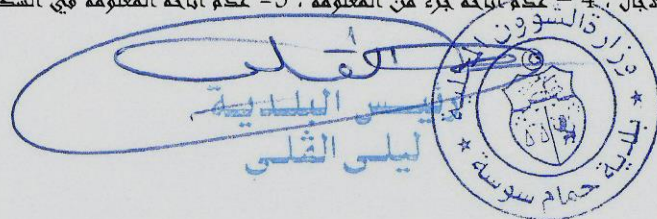 4 – عدم اتاحة جزء من المعلومة ، 5- عدم اتاحة المعلومة في
رئيس البلدية
ليلى الڨلي
وزارة الشؤون المحلية
* بلدية حمام سوسة *